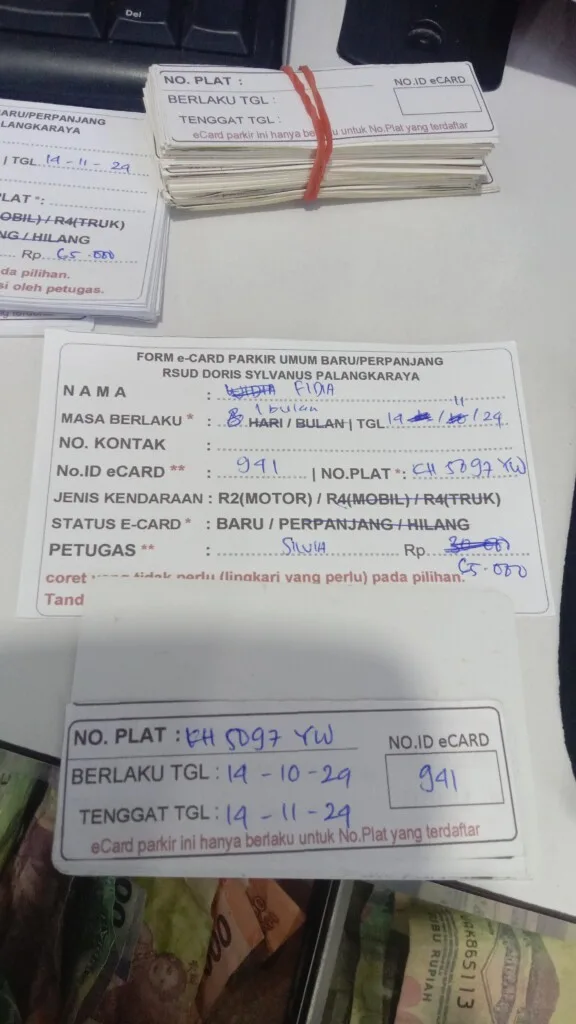 Del
NO. PLAT :
NO.ID eCARD
BERLAKU TGL :
TENGGAT TGL :
eCard parkir ini hanya untuk No.Plat yang terdaftar
ARU/PERPANJANG
ALANGKARAYA
| TGL 14-11-24
LAT *:
OBIL) / R4(TRUK)
NG / HILANG
Rp. 65.000
da pilihan.
si oleh petugas.
FORM e-CARD PARKIR UMUM BARU/PERPANJANG
RSUD DORIS SYLVANUS PALANGKARAYA
NAMA : FIDIA
1 bulan
MASA BERLAKU * : HARI / BULAN | TGL 14 / 11 / 24
NO. KONTAK :
No.ID eCARD ** : 941 | NO.PLAT *: KH 5097 YW
JENIS KENDARAAN : R2(MOTOR) / R4(MOBIL) / R4(TRUK)
STATUS E-CARD * : BARU / PERPANJANG / HILANG
PETUGAS ** : SILVIA Rp. 30.000
65.000
coret yang tidak perlu (lingkari yang perlu) pada pilihan.
Tand
NO. PLAT : KH 5097 YW
NO.ID eCARD
BERLAKU TGL : 14-10-24
941
TENGGAT TGL : 14-11-24
eCard parkir ini hanya berlaku untuk No.Plat yang terdaftar
AK865113
RIBU RUPIAH